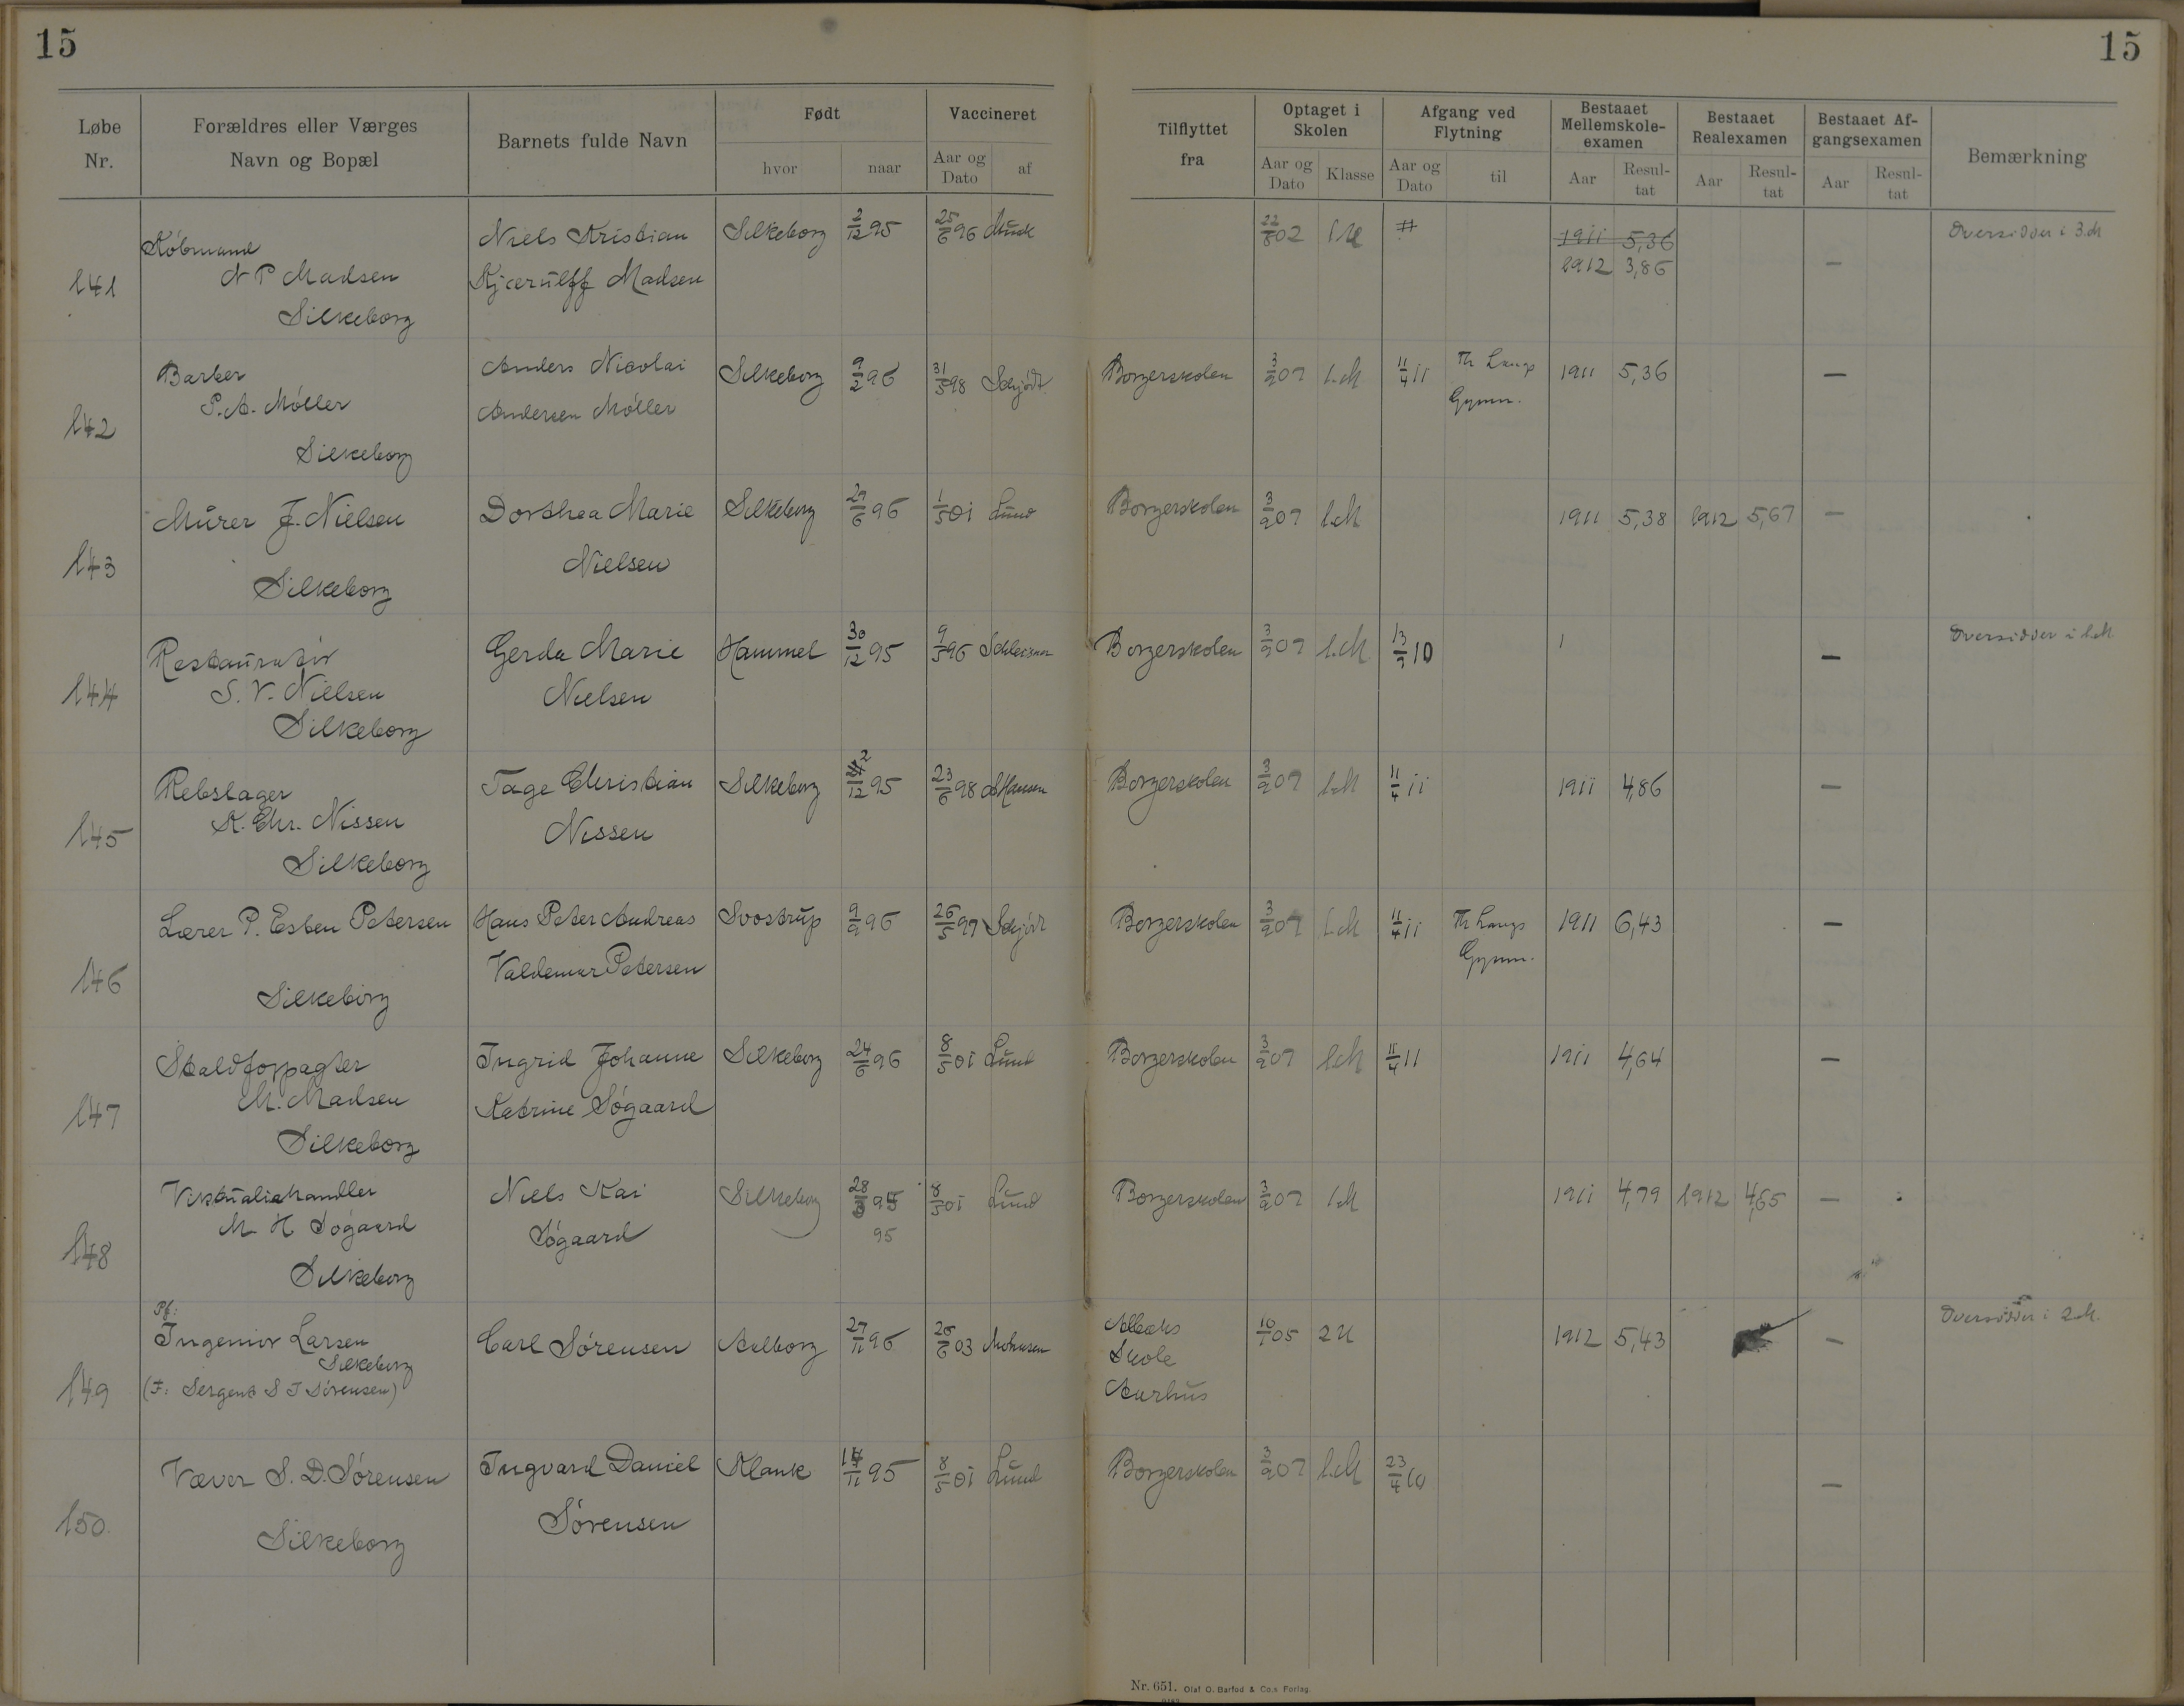 15
15
Løbe Nr.
Forældres eller Værges Navn og Bopæl
Barnets fulde Navn
Født
hvor
naar
Vaccineret
Aar og Dato
af
Tilflyttet fra
Optaget i Skolen
Aar og Dato
Klasse
Afgang ved Flytning
Aar og Dato
til
Bestaaet Mellemskole-examen
Aar
Resul-tat
Bestaaet Realexamen
Aar
Resul-tat
Bestaaet Af-gangsexamen
Aar
Resul-tat
Bemærkning
141
Købmand
N P Madsen
Silkeborg
Niels Kristian
Kjærulff Madsen
Silkeborg 2/12 95 25/6 96 Munk
22/8 02 1 U #
1911 5,36
1912 3,86 —
Oversidder i 3.M
142
Barber
P. A. Møller
Silkeborg
Anders Nicolai
Andersen Møller
Silkeborg 9/2 96 31/5 98 Schjødt
Borgerskolen 3/9 07 1.M 11/4 11 Th Langs
Gymn.
1911 5,36 —
143
Murer J. Nielsen
Silkeborg
Dorthea Marie
Nielsen
Silkeborg 29/6 96 1/5 01 Lund
Borgerskolen 3/9 07 1.M 1911 5,38 1912 5,67 —
144
Restauratør
S. V. Nielsen
Silkeborg
Gerda Marie
Nielsen
Hammel 30/12 95 9/5 96 Schleisner
Borgerskolen 3/9 07 1.M 13/9 10 —
Oversidder i 1.M
145
Rebslager
K. Chr. Nissen
Silkeborg
Tage Christian
Nissen
Silkeborg 2/12 95 23/6 98 Hansen
Borgerskolen 3/9 07 1.M 11/4 11 1911 4,86 —
146
Lærer P. Esben Petersen
Silkeborg
Hans Peter Andreas
Valdemar Petersen
Svostrup 9/9 96 26/5 97 Schjødt
Borgerskolen 3/9 07 1.M 11/4 11 Th Langs
Gymn.
1911 6,43 —
147
Staldforpagter
M. Madsen
Silkeborg
Ingrid Johanne
Katrine Søgaard
Silkeborg 24/6 96 8/5 01 Lund
Borgerskolen 3/9 07 1.M 11/4 11 1911 4,64 —
148
Viktualiehandler
M H Søgaard
Silkeborg
Niels Kai
Søgaard
Silkeborg 28/3 95
95
8/5 01 Lund
Borgerskolen 3/9 07 1.M 1911 4,79 1912 4,65 —
149
Pf:
Ingeniør Larsen
Silkeborg
(F: Sergent S J Sørensen)
Carl Sørensen
Aalborg 27/11 96 26/6 03
Skole
Aarhus
16/1 05 2 U 1912 5,43 —
Oversidder i 2.M.
150
Væver S. D. Sørensen
Silkeborg
Ingvard Daniel
Sørensen
Klank 14/11 95 8/5 01 Lund
Borgerskolen 3/9 07 1.M 23/4 10 —
Nr. 651. Olaf O. Barfod & Co.s Forlag.